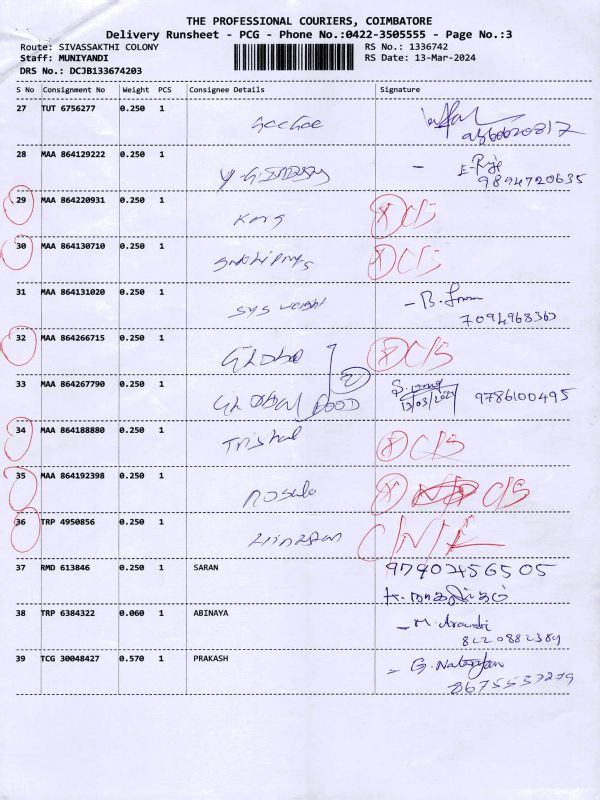 THE PROFESSIONAL COURIERS, COIMBATORE
Delivery Runsheet - PCG - Phone No.:0422-3505555 - Page No.:3
Route: SIVASSAKTHI COLONY RS No.: 1336742
Staff: MUNIYANDI RS Date: 13-Mar-2024
DRS No.: DCJB133674203
S No Consignment No Weight PCS Consignee Details Signature
27 TUT 6756277 0.250 1
28 MAA 864129222 0.250 1
9894720635
29 MAA 864220931 0.250 1 C/S
30 MAA 864130710 0.250 1 C/S
31 MAA 864131020 0.250 1 sys weight
7094968363
32 MAA 864266715 0.250 1 Global C/S
33 MAA 864267790 0.250 1 Global FOOD 2 13/03/2024 9786100495
34 MAA 864188880 0.250 1 C/S
35 MAA 864192398 0.250 1 C/S
36 TRP 4950856 0.250 1
37 RMD 613846 0.250 1 SARAN 97902456505
38 TRP 6384322 0.060 1 ABINAYA
8220882389
39 TCG 30048427 0.570 1 PRAKASH G. Natarajan